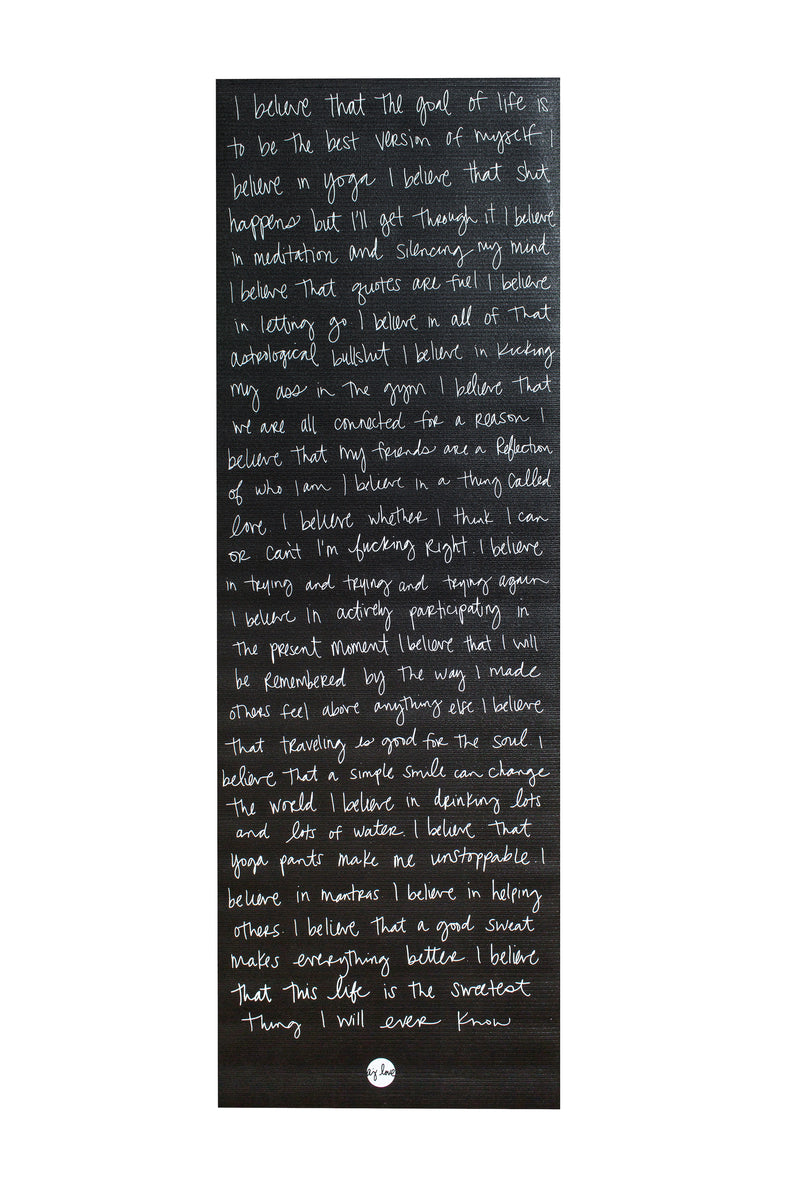 I believe that the goal of life is
to be the best version of myself. I
believe in yoga I believe that shit
happens but I'll get through it I believe
in meditation and silencing my mind
I believe that quotes are fuel I believe
in letting go I believe in all of that
astrological bullshit I believe in kicking
my ass in the gym I believe that
we are all connected for a reason I
believe that my friends are a reflection
of who I am I believe in a thing called
love I believe whether I think I can
or can't I'm fucking right I believe
in trying and trying and trying again
I believe in actively participating in
the present moment I believe that I will
be remembered by the way I made
others feel above anything else I believe
that traveling is good for the soul. I
believe that a simple smile can change
the world I believe in drinking lots
and lots of water. I believe that
yoga pants make me unstoppable. I
believe in mantras I believe in helping
others. I believe that a good sweat
makes everything better. I believe
that this life is the sweetest
thing I will ever know
ej love